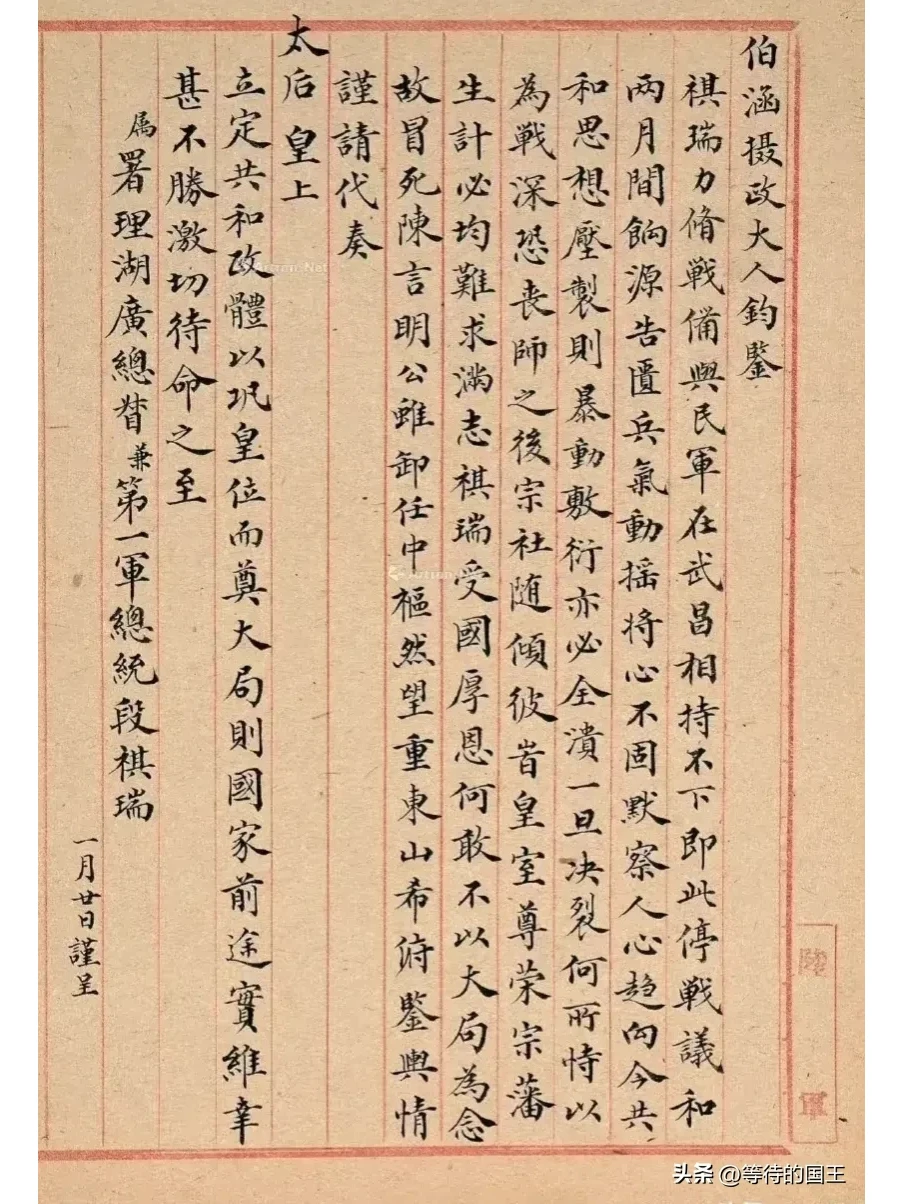 伯涵摄政大人鈞鑒
祺瑞力脩戰備與民軍在武昌相持不下即此停戰議和
两月間餉源告匱兵氣動摇将心不固默察人心趋向今共
和思想壓製則暴動敷衍亦必全潰一旦决裂何所恃以
為戰深恐丧師之後宗社随傾彼旹皇室尊荣宗藩
生計必均難求滿志祺瑞受國厚恩何敢不以大局為念
故冒死陳言明公雖卸任中樞然望重東山希俯鑒輿情
謹請代奏
太后皇上
立定共和政體以巩皇位而奠大局則國家前途實維幸
甚不勝激切待命之至
属署理湖廣總督兼第一軍總統段祺瑞
一月廿日謹呈
軍
头条 @等待的国王